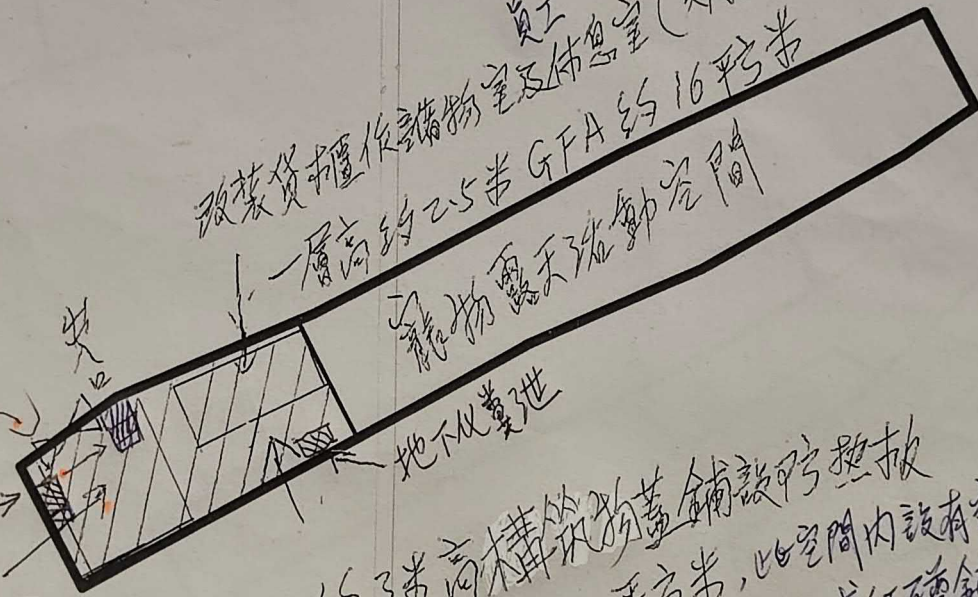 員工
改裝貨櫃作儲物室及休息室(
一層高約2.5米GFA約16平方米
寵物露天活動空間
地下化糞池
米高構築物蓋鋪設隔熱板
平方米，此空間內設有